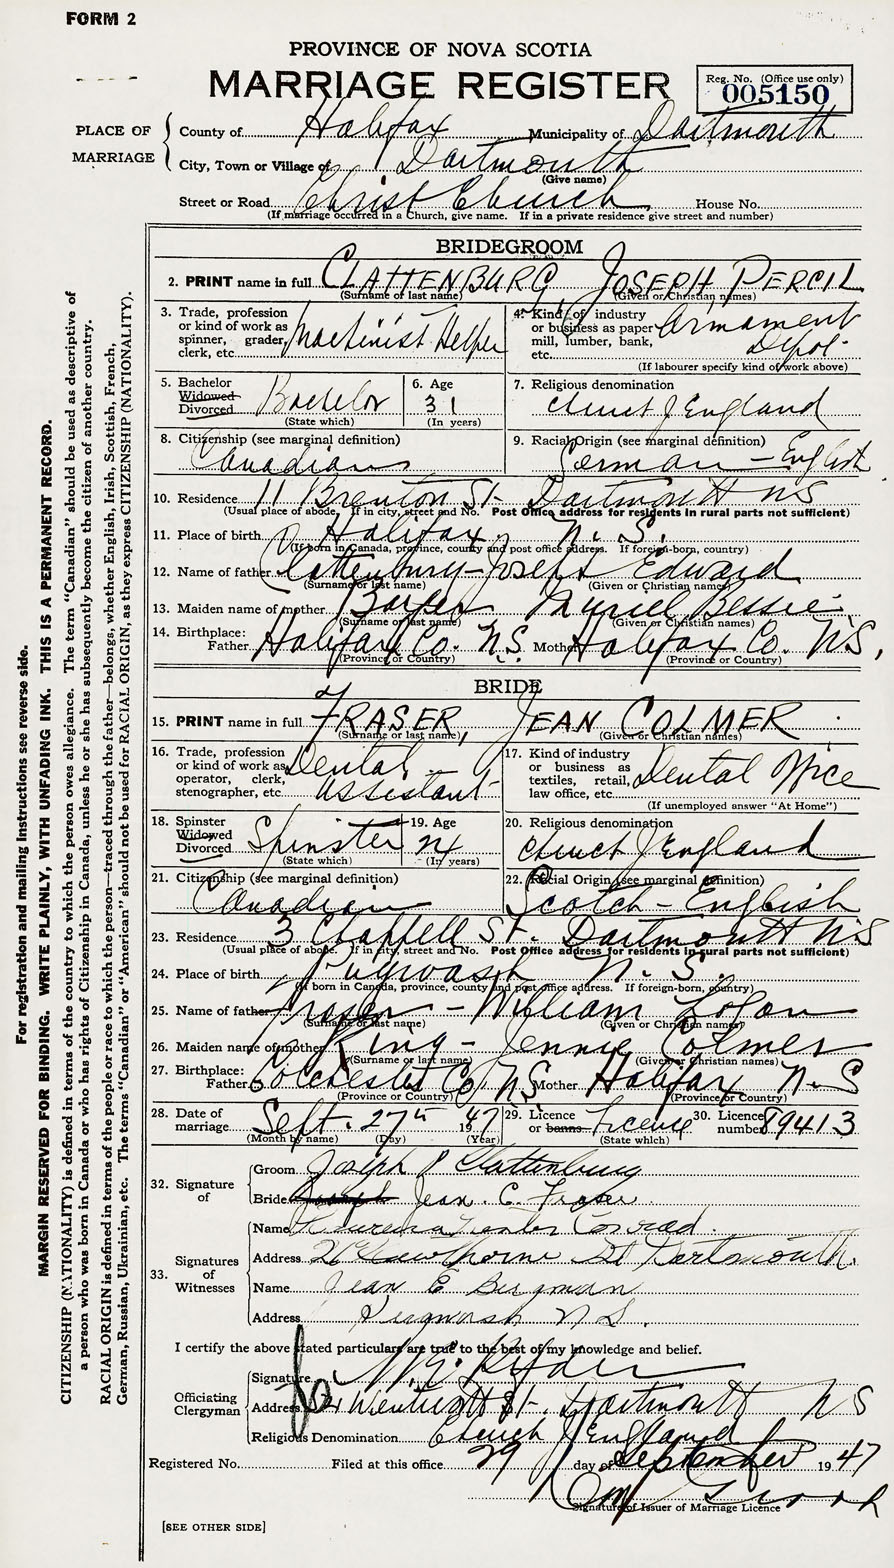 FORM 2
PROVINCE OF NOVA SCOTIA
MARRIAGE REGISTER
Reg. No. (Office use only)
005150
PLACE OF MARRIAGE
County of Halifax Municipality of Dartmouth
City, Town or Village of Dartmouth
(Give name)
Street or Road Christ Church House No.
(If marriage occurred in a Church, give name. If in a private residence give street and number)
BRIDEGROOM
2. PRINT name in full CLATTENBURG JOSEPH PERCIL
(Surname or last name) (Given or Christian names)
3. Trade, profession or kind of work as spinner, grader, clerk, etc. Machinist Helper
4. Kind of industry or business as paper mill, lumber, bank, etc. Armament Depot
(If labourer specify kind of work above)
5. Bachelor Widowed Divorced Bachelor
(State which)
6. Age 31
(In years)
7. Religious denomination Church of England
8. Citizenship (see marginal definition) Canadian
9. Racial Origin (see marginal definition) German - English
10. Residence 11 Brenton St. Dartmouth NS
(Usual place of abode. If in city, street and No. Post Office address for residents in rural parts not sufficient)
11. Place of birth Halifax, N.S.
(If born in Canada, province, county and post office address. If foreign-born, country)
12. Name of father Clattenburg - Joseph Edward
(Surname or last name) (Given or Christian names)
13. Maiden name of mother Muriel Bessie
(Surname or last name) (Given or Christian names)
14. Birthplace: Father Halifax Co. N.S. Mother Halifax Co. N.S.
(Province or Country) (Province or Country)
BRIDE
15. PRINT name in full FRASER, JEAN COLMER
(Surname or last name) (Given or Christian names)
16. Trade, profession or kind of work as operator, clerk, stenographer, etc. Dental Assistant
17. Kind of industry or business as textiles, retail, law office, etc. Dental Office
(If unemployed answer "At Home")
18. Spinster Widowed Divorced Spinster
(State which)
19. Age 24
(In years)
20. Religious denomination Church of England
21. Citizenship (see marginal definition) Canadian
22. Racial Origin (see marginal definition) Scotch - English
23. Residence 3 Chappell St. Dartmouth NS
(Usual place of abode. If in city, street and No. Post Office address for residents in rural parts not sufficient)
24. Place of birth Pugwash N.S.
(If born in Canada, province, county and post office address. If foreign-born, country)
25. Name of father Fraser - William Logan
(Surname or last name) (Given or Christian names)
26. Maiden name of mother King - Jennie Colmer
(Surname or last name) (Given or Christian names)
27. Birthplace: Father Colchester Co. NS Mother Halifax N.S
(Province or Country) (Province or Country)
28. Date of marriage Sept. 27th 1947
(Month by name) (Day) (Year)
29. Licence or banns Licence
(State which)
30. Licence number 89413
32. Signature of
Groom Joseph P Clattenburg
Bride Jean. C. Fraser
33. Signatures of Witnesses
Name Conrad.
Address Hawthorne St Dartmouth.
Name Jean E Bergman
Address Pugwash N S.
I certify the above stated particulars are true to the best of my knowledge and belief.
Officiating Clergyman
Signature Ryder
Address Dartmouth N S
Religious Denomination Church of England
Registered No. Filed at this office 29 day of September 1947
Signature of Issuer of Marriage Licence
[SEE OTHER SIDE]
For registration and mailing instructions see reverse side.
MARGIN RESERVED FOR BINDING. WRITE PLAINLY, WITH UNFADING INK. THIS IS A PERMANENT RECORD.
CITIZENSHIP (NATIONALITY) is defined in terms of the country to which the person owes allegiance. The term "Canadian" should be used as descriptive of
a person who was born in Canada or who has rights of Citizenship in Canada, unless he or she has subsequently become the citizen of another country.
RACIAL ORIGIN is defined in terms of the people or race to which the person—traced through the father—belongs, whether English, Irish, Scottish, French,
German, Russian, Ukrainian, etc. The terms "Canadian" or "American" should not be used for RACIAL ORIGIN, as they express CITIZENSHIP (NATIONALITY).